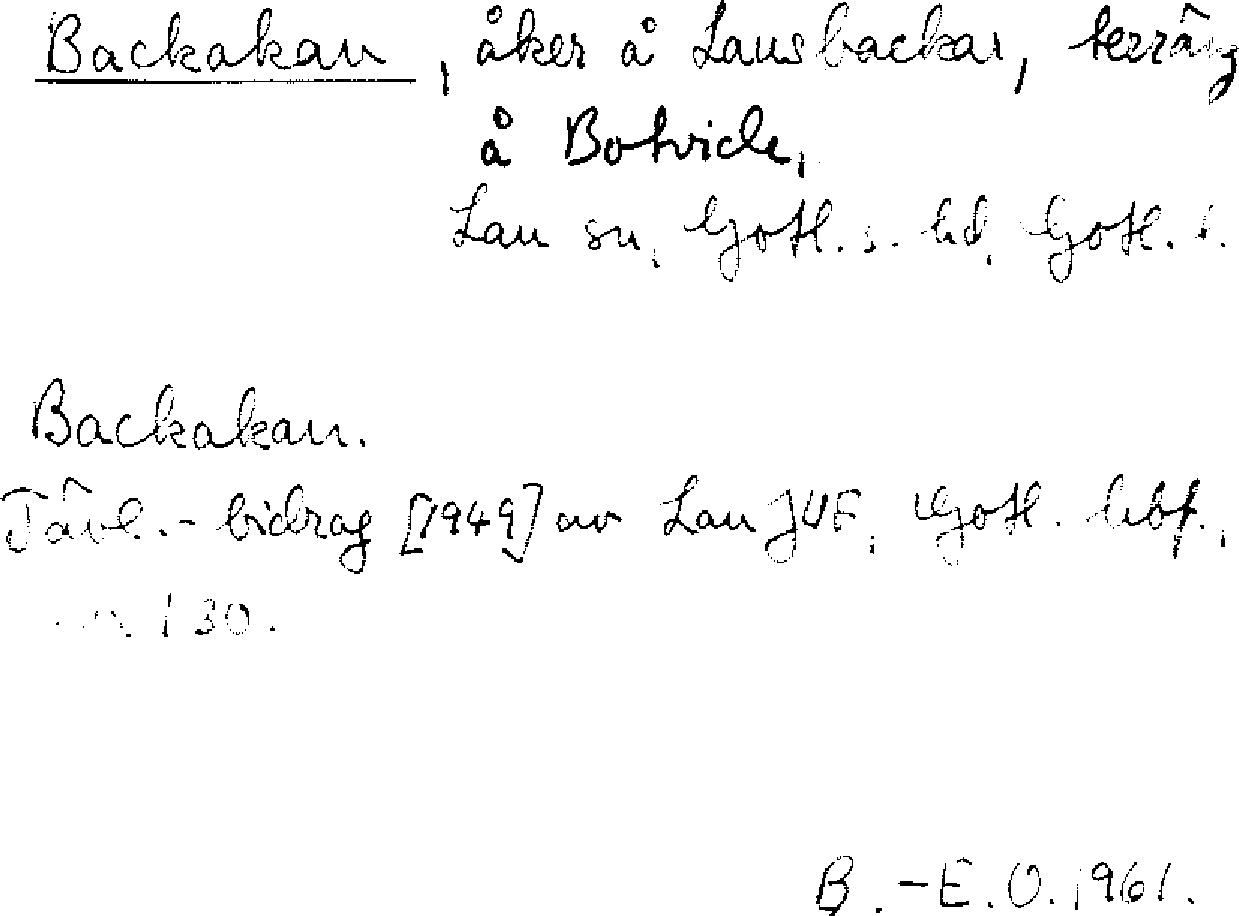 Backakan, åker å Lausbackar, terräng
å Botvide,
Lau sn, Gotl. s. hd, Gotl. l.
Backakan.
Tävl.-bidrag [1949] av Lau JUF, Gotl. hbf.,
130.
B.-E.O. 1961.